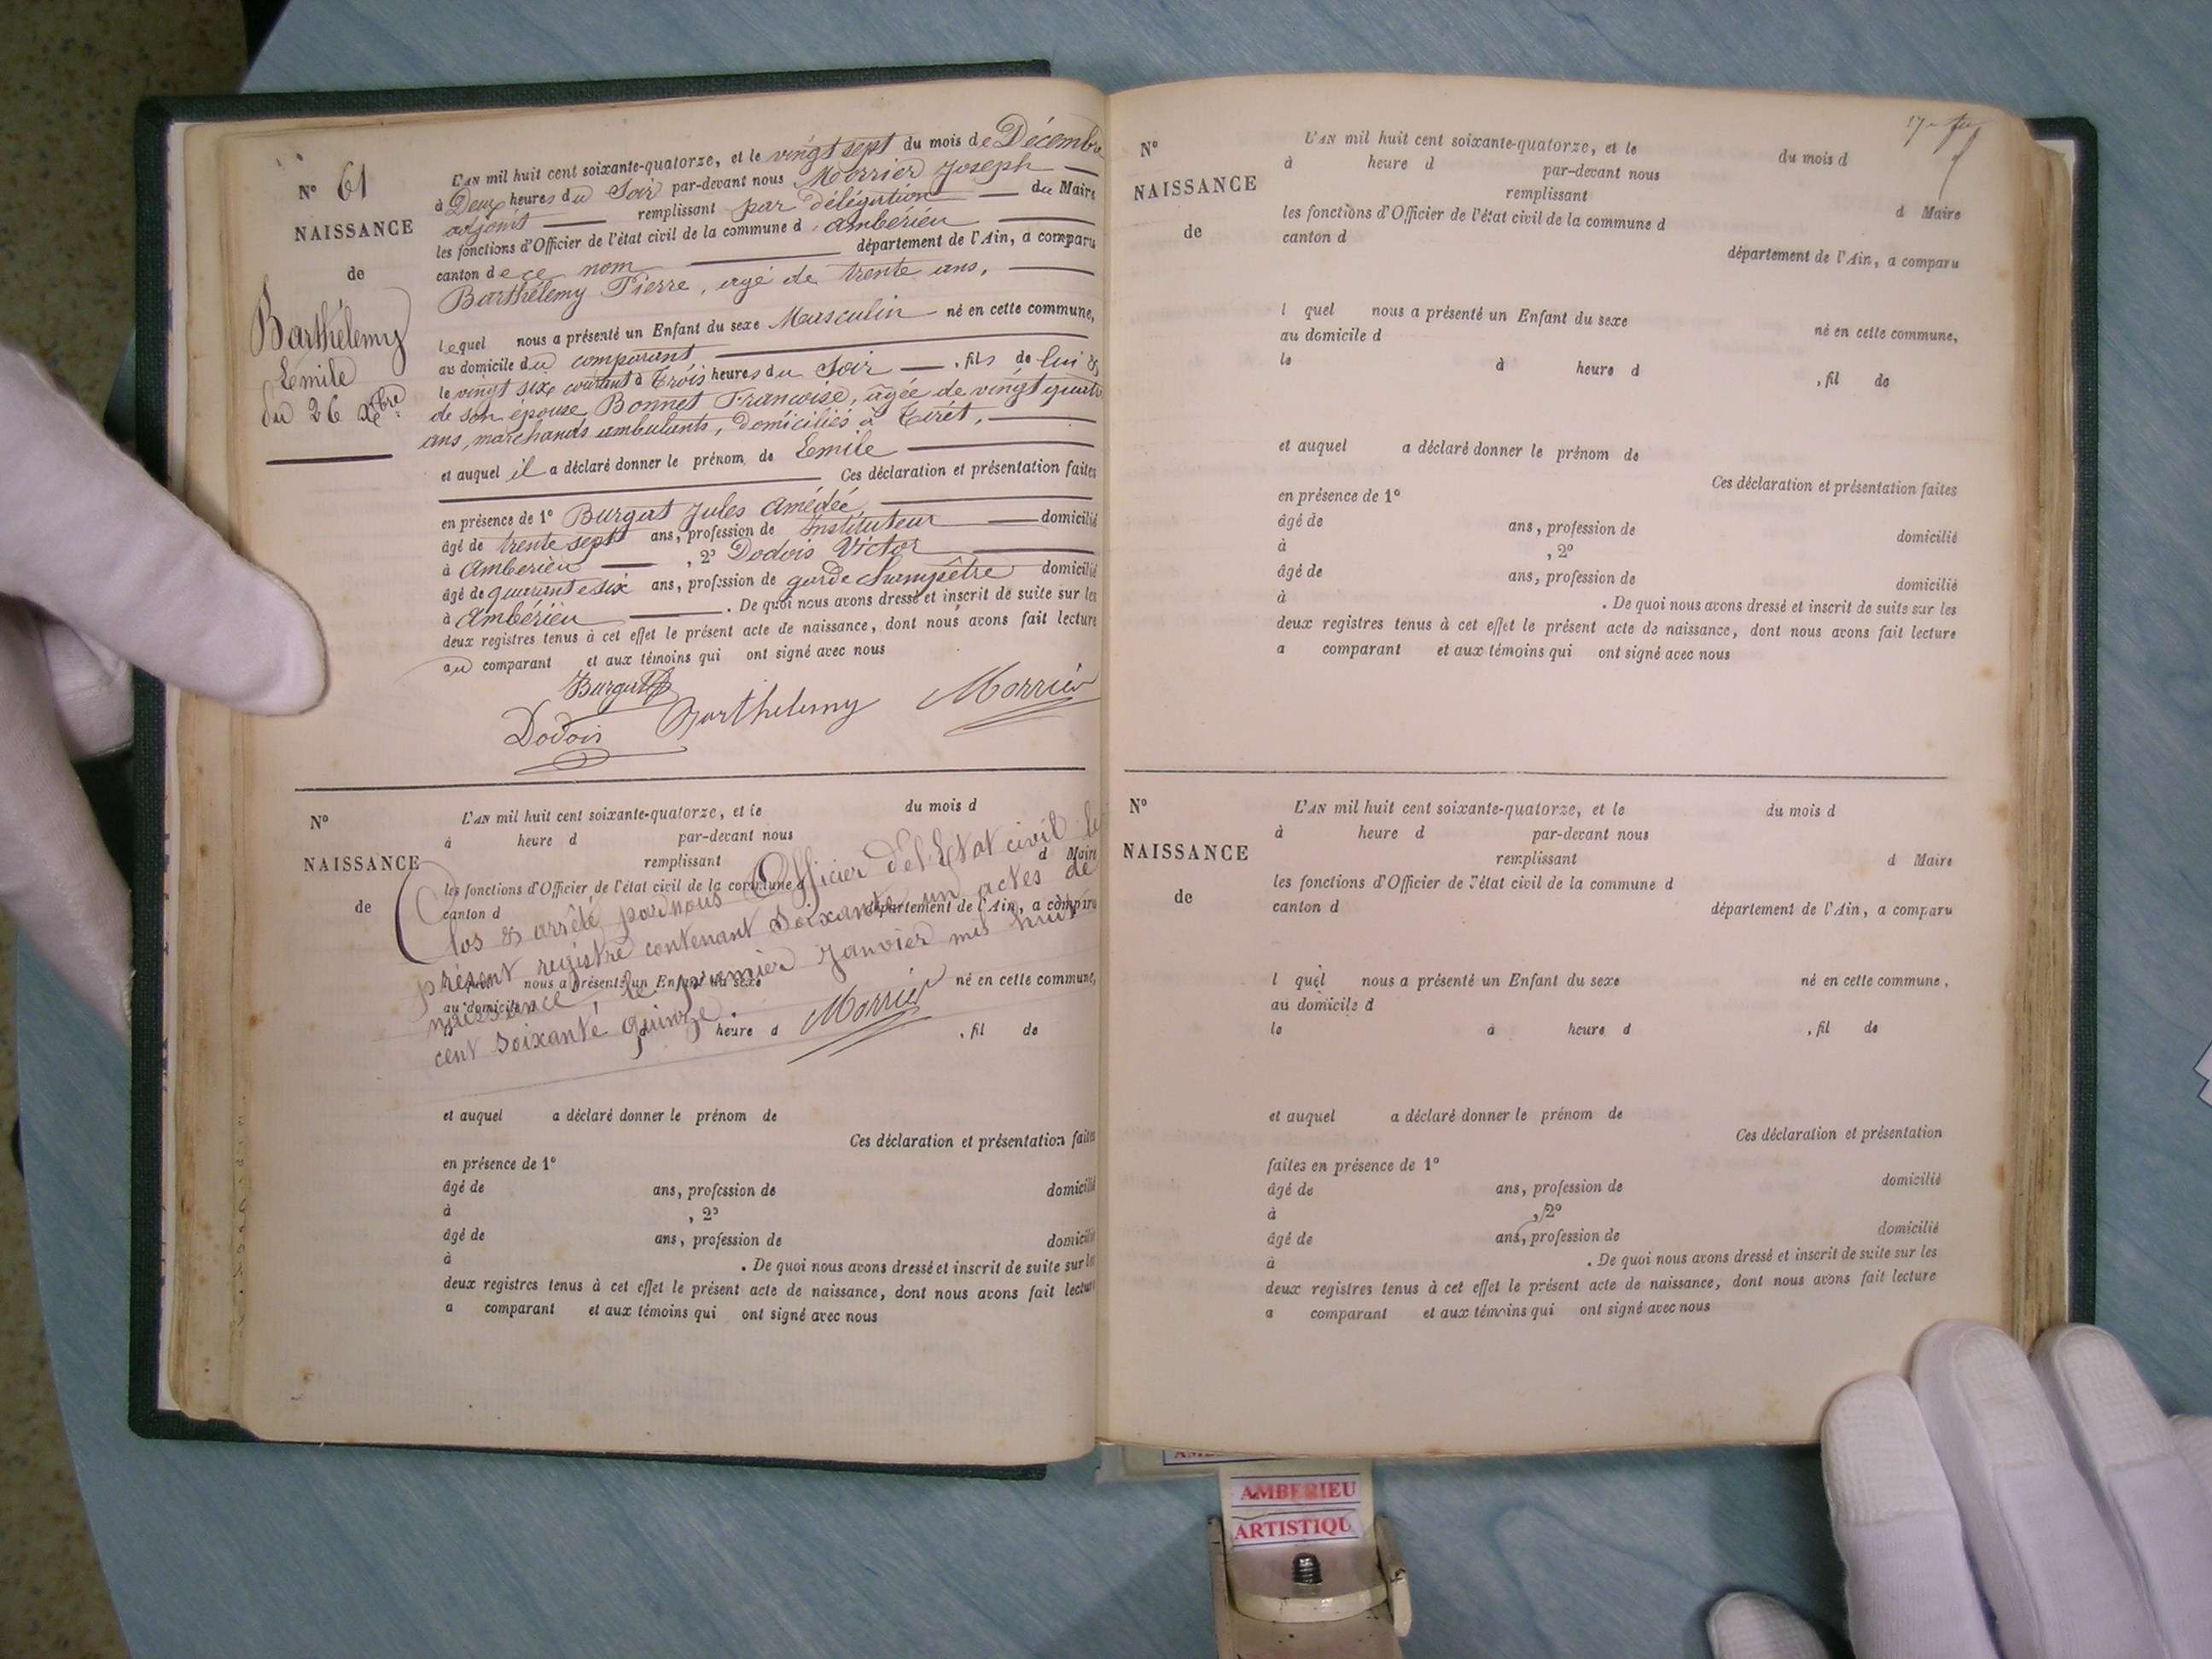 N° 61
NAISSANCE
de
Barthélemy
Emile
du 26 Xbre
L'AN mil huit cent soixante-quatorze, et le vingt sept du mois de Décembre
à Deux heures du Soir par-devant nous Morrier Joseph
adjoint remplissant par délégation du Maire
les fonctions d'Officier de l'état civil de la commune d'Ambérieu
canton de ce nom département de l'Ain, a comparu
Barthélemy Pierre, agé de trente ans,
lequel nous a présenté un Enfant du sexe Masculin né en cette commune,
au domicile du comparant
le vingt six courant à Trois heures du Soir, fils de lui &
de son épouse Bonnet Francoise, agée de vingt quatre
ans, marchands ambulants, domiciliés à Tiret,
et auquel il a déclaré donner le prénom de Emile
Ces déclaration et présentation faites
en présence de 1° Burgat Jules Amédée
âgé de trente sept ans, profession de Instituteur domicilié
à Ambérieu, 2° Dodois Victor
âgé de quarante six ans, profession de garde champêtre domicilié
à Ambérieu. De quoi nous avons dressé et inscrit de suite sur les
deux registres tenus à cet effet le présent acte de naissance, dont nous avons fait lecture
au comparant et aux témoins qui ont signé avec nous
Burgat
Dodois Barthelemy Morrier
N°
NAISSANCE
de
L'AN mil huit cent soixante-quatorze, et le du mois d
à heure d par-devant nous
remplissant d Maire
les fonctions d'Officier de l'état civil de la commune d
canton d département de l'Ain, a comparu
quel nous a présenté un Enfant du sexe né en cette commune,
au domicile d
heure d , fil de
Clos & arrêté par nous Officier de l'Etat civil le
présent registre contenant soixante un actes de
naissance, le premier Janvier mil huit
cent soixante quinze.
Morrier
et auquel a déclaré donner le prénom de
Ces déclaration et présentation faites
en présence de 1°
âgé de ans, profession de domicilié
à , 2°
âgé de ans, profession de domicilié
à . De quoi nous avons dressé et inscrit de suite sur les
deux registres tenus à cet effet le présent acte de naissance, dont nous avons fait lecture
a comparant et aux témoins qui ont signé avec nous
N°
NAISSANCE
de
L'AN mil huit cent soixante-quatorze, et le du mois d
à heure d par-devant nous
remplissant d Maire
les fonctions d'Officier de l'état civil de la commune d
canton d département de l'Ain, a comparu
l quel nous a présenté un Enfant du sexe né en cette commune,
au domicile d
le à heure d , fil de
et auquel a déclaré donner le prénom de
Ces déclaration et présentation faites
en présence de 1°
âgé de ans, profession de domicilié
à , 2°
âgé de ans, profession de domicilié
à . De quoi nous avons dressé et inscrit de suite sur les
deux registres tenus à cet effet le présent acte de naissance, dont nous avons fait lecture
a comparant et aux témoins qui ont signé avec nous
N°
NAISSANCE
de
L'AN mil huit cent soixante-quatorze, et le du mois d
à heure d par-devant nous
remplissant d Maire
les fonctions d'Officier de l'état civil de la commune d
canton d département de l'Ain, a comparu
l quel nous a présenté un Enfant du sexe né en cette commune,
au domicile d
le à heure d , fil de
et auquel a déclaré donner le prénom de
Ces déclaration et présentation
faites en présence de 1°
âgé de ans, profession de domicilié
à , 2°
âgé de ans, profession de domicilié
à . De quoi nous avons dressé et inscrit de suite sur les
deux registres tenus à cet effet le présent acte de naissance, dont nous avons fait lecture
a comparant et aux témoins qui ont signé avec nous
AMBERIEU
ARTISTIQU